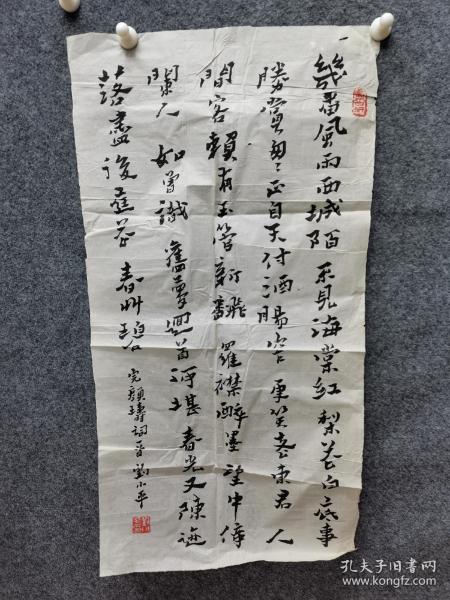 幾番風雨西城陌不見海棠紅梨花白底事
勝賞匆〻正自天付酒腸窄更笑老東君人
間客賴有玉管新翻羅襟醉墨望中倚
闌人如曾識舊夢迴首何堪春光又陳迹
落盡後庭花春艸碧
完顏璹詞 劉小平
孔夫子旧书网
www.kongfz.com